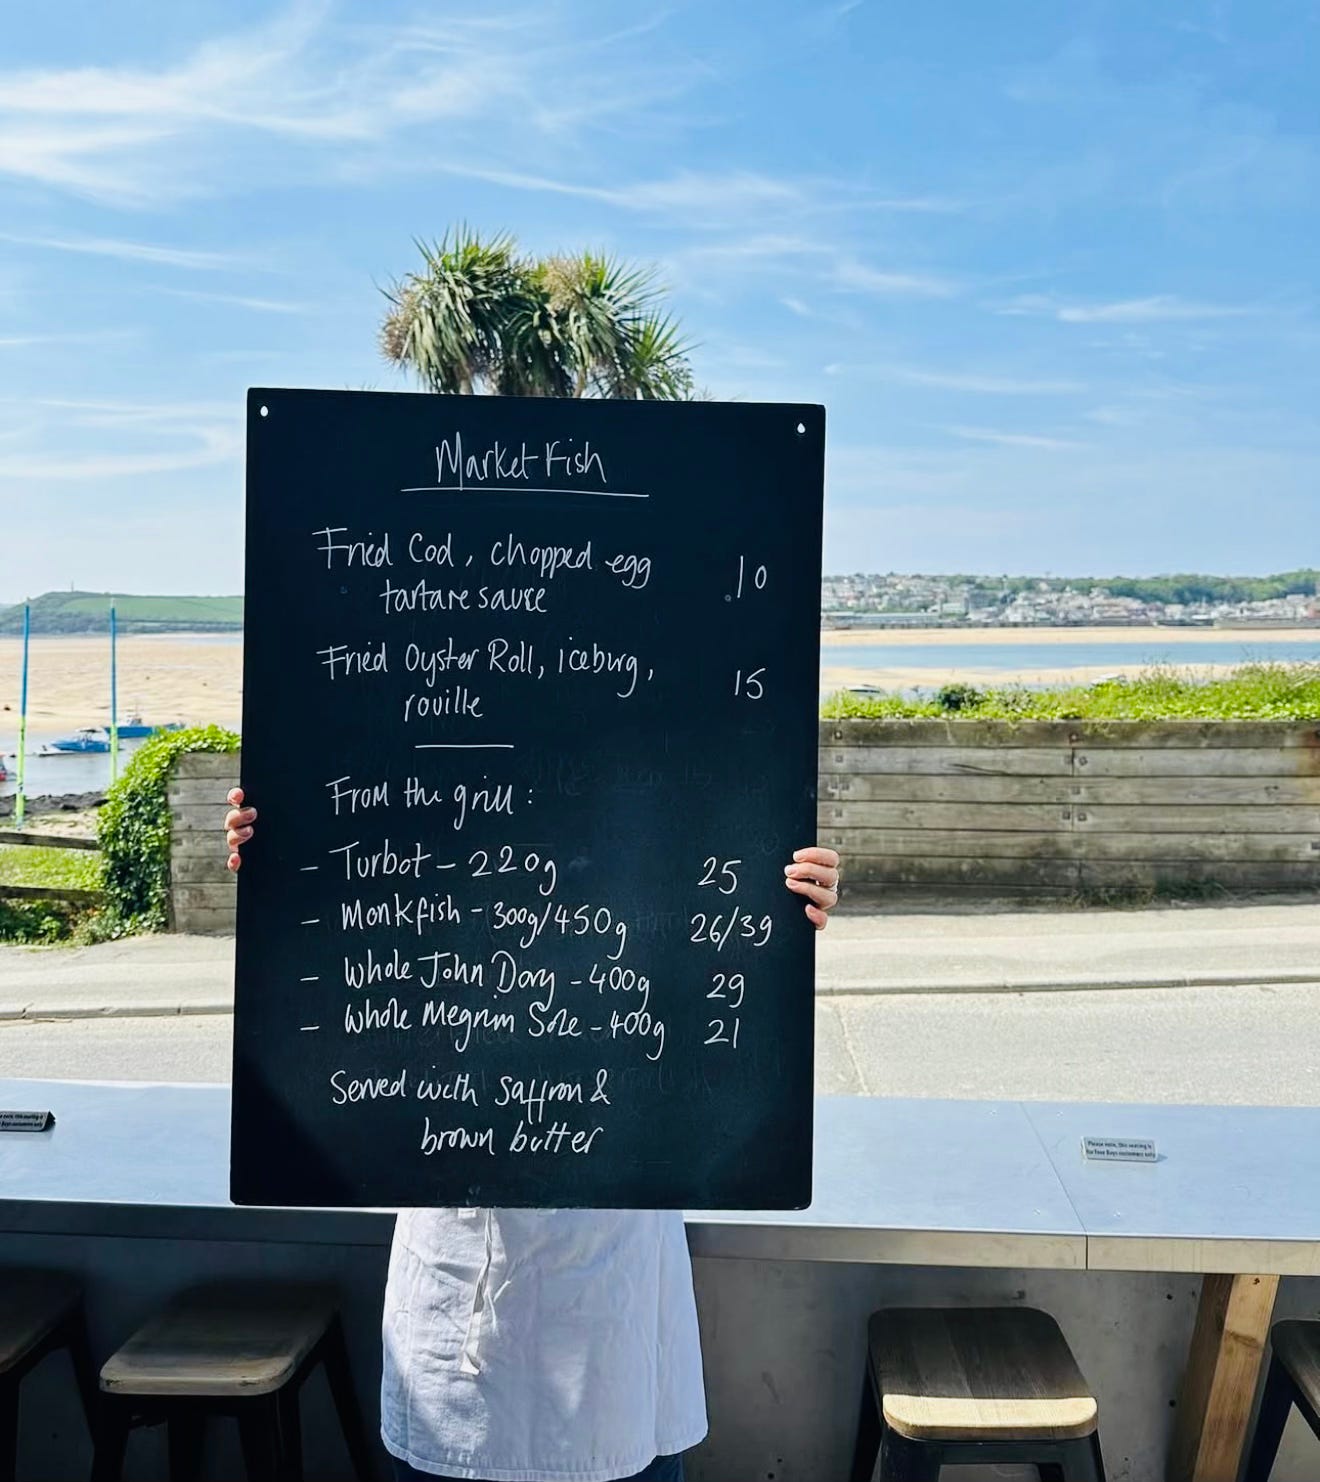 Market Fish
Fried Cod, chopped egg
tartare sauce
10
Fried Oyster Roll, iceburg,
rouille
15
From the grill:
- Turbot - 220g 25
- Monkfish - 300g/450g 26/39
- Whole John Dory - 400g 29
- Whole Megrim Sole - 400g 21
Served with saffron &
brown butter
Please note, this seating is
for Four Boys customers only